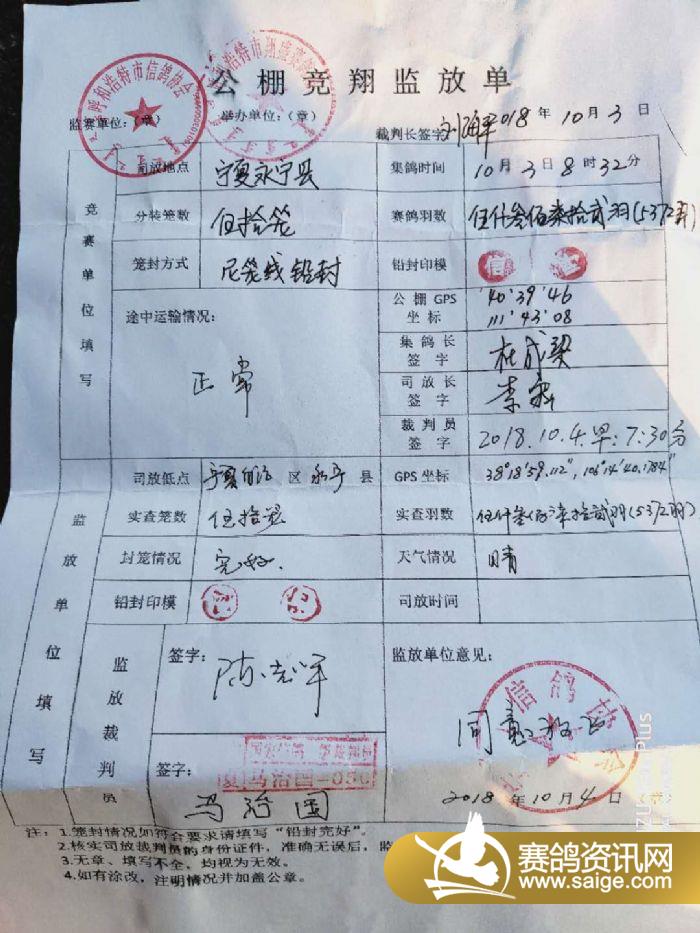 公棚竞翔监放单
呼和浩特市信鸽协会
监赛单位：（章） 举办单位：（章） 裁判长签字 2018年10月3日
竞赛单位填写
司放地点 宁夏永宁县 集鸽时间 10月3日8时32分
分装笼数 伍拾笼 赛鸽羽数 伍仟叁佰柒拾贰羽(5372羽)
笼封方式 尼笼线铅封 铅封印模 信
途中运输情况：
正常
公棚GPS坐标 40°39'46
111°43'08
集鸽长签字 杜成梁
司放长签字 李
裁判员签字 2018.10.4.早:7:30分
监放单位填写
司放低点 宁夏自治区永宁县 GPS坐标 38°18'59.112", 106°14'40.1784"
实查笼数 伍拾笼 实查羽数 伍仟叁佰柒拾贰羽(5372羽)
封笼情况 完好. 天气情况 晴
铅封印模 司放时间
监放裁判员
签字： 陈志军
监放单位意见：
同意放飞
信鸽协会
签字： 马治国
马治国-050
2018年10月4日 章
注：1.笼封情况如符合要求请填写“铅封完好”。
2.核实司放裁判员的身份证件，准确无误后，监
3.无章、填写不全，均视为无效。
4.如有涂改，注明情况并加盖公章。
赛鸽资讯网
www.saige.com